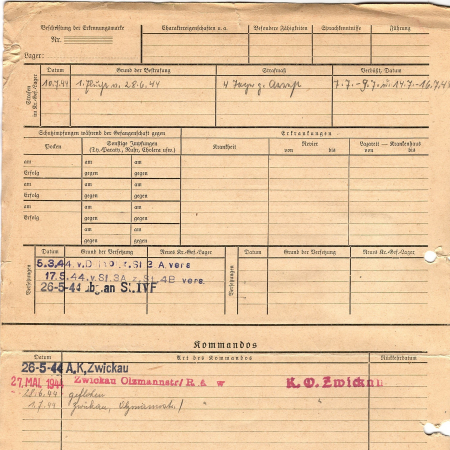 Beschriftung der Erkennungsmarke
Nr.
Lager:
Charaktereigenschaften u. a.
Besondere Fähigkeiten
Sprachkenntnisse
Führung
Strafen im Kr.-Gef.-Lager
Datum
Grund der Bestrafung
Strafmaß
Verbüßt, Datum
10.7.44
1. Flucht v. 28.6.44
4 Tage g. Arrest
7.7. - 9.7. u. 14.7. - 16.7.44
Schutzimpfungen während der Gefangenschaft gegen
Erkrankungen
Pocken
Sonstige Impfungen
(Ty.-Paraty., Ruhr, Cholera usw.)
Krankheit
Revier
von bis
Lazarett — Krankenhaus
von bis
am
am
am
Erfolg
gegen
gegen
am
am
am
Erfolg
gegen
gegen
am
am
am
Erfolg
gegen
gegen
am
am
gegen
gegen
Versetzungen
Datum
Grund der Versetzung
Neues Kr.-Gef.-Lager
Versetzungen
Datum
Grund der Versetzung
Neues Kr.-Gef.-Lager
5.3.44 z. St 3 A vers
17.5.44 v. St. 3A z. St. 4B vers.
26-5-44 an St. IVF
Kommandos
Datum
Art des Kommandos
Rückkehrdatum
26-5-44 A,K,Zwickau
27. MAI 1944 Zwickau
28.6.44 geflohen
1.7.44 Zwickau,